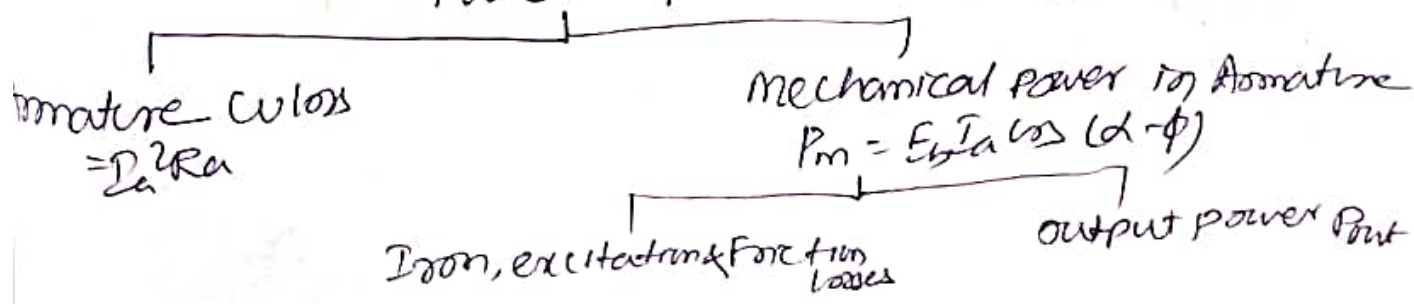 Armature Cu loss
= Ia²Ra
Mechanical power in Armature
Pm = Eb Ia cos (α-ϕ)
Iron, excitation & Friction
losses
output power Pout